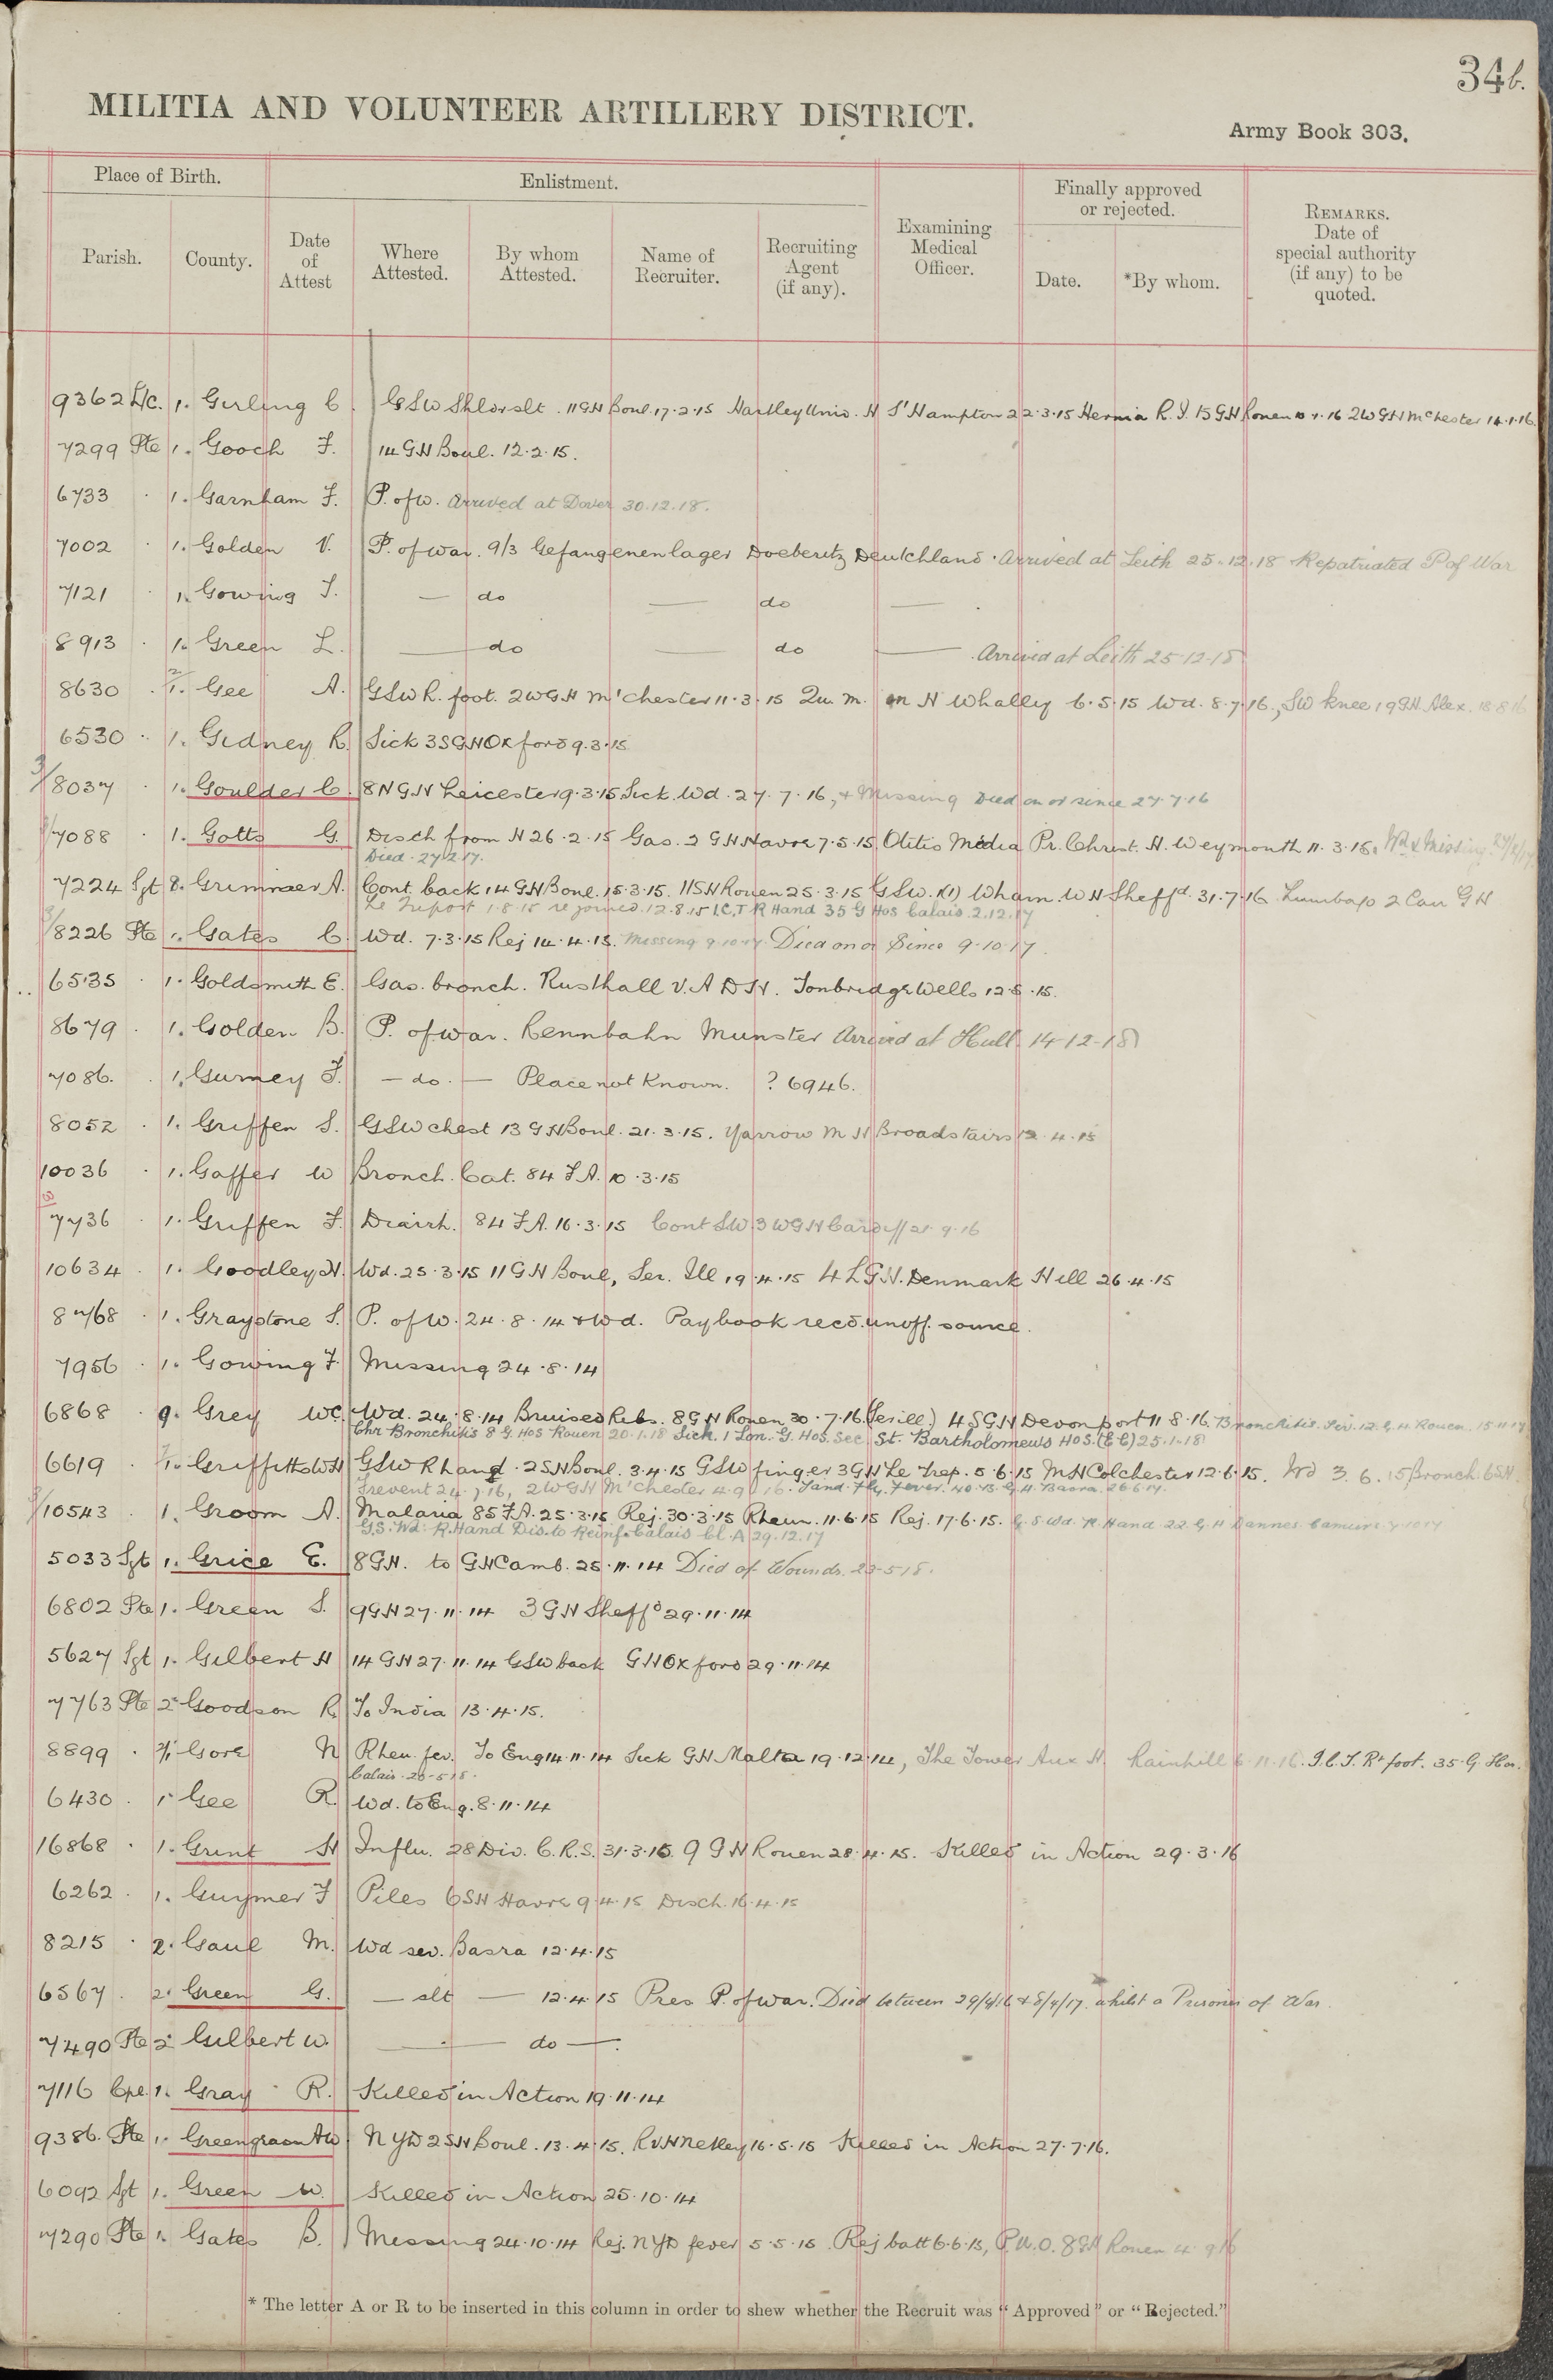 34b.
MILITIA AND VOLUNTEER ARTILLERY DISTRICT.
Army Book 303.
Place of Birth.
Enlistment.
Finally approved or rejected.
Parish.
County.
Date of Attest
Where Attested.
By whom Attested.
Name of Recruiter.
Recruiting Agent (if any).
Examining Medical Officer.
Date.
*By whom.
REMARKS. Date of special authority (if any) to be quoted.
9362 L/c. 1. Girling C. GSW Shldr slt. 11 GH Boul. 17.2.15 Hartley Univ. H S'Hampton 22.3.15 Hernia R.I. 15 GH Rouen 1.16 2WGH McHester 14.1.16.
7299 Pte 1. Gooch F. 14 GH Boul. 12.2.15.
6733 . 1. Garnham F. P. of W. Arrived at Dover 30.12.18.
7002 . 1. Golden V. P. of War. 9/3 Gefangenenlager Doeberitz Deutchland. Arrived at Leith 25.12.18 Repatriated P of War
7121 . 1. Gowing T. — do — do —
8913 . 1. Green L. — do — do — Arrived at Leith 25-12-18
8630 . 2/1. Gee A. GSW R. foot. 2WGH M'chester 11.3.15 Qu. M. m H Whalley 6.5.15 Wd. 8.7.16., SW knee 19 GH Alex. 18.8.16
6530 . 1. Gidney R. Sick 3SGH Oxford 9.3.15
3/8037 . 1. Goulder C. 8NGH Leicester 9.3.15 Sick. Wd. 27.7.16, & Missing Died on or since 27.7.16
3/7088 . 1. Gotts G. Disch from H 26.2.15 Gas. 2 GH Havre 7.5.15 Otitis Media Pr. Christ. H. Weymouth 11.3.16. Wd & Missing
Died. 27.2.17.
7224 Sgt 8. Grimmer A. Cont. back 14 GH Boul. 15.3.15. 11SH Rouen 25.3.15 GSW. (1) Wharn. WH Sheffd. 31.7.16 Lumbago 2 Can GH
Le Treport 1.8.15 rejoined. 12.8.15 I.C.T R Hand 35 G Hos Calais. 2.12.17
3/8226 Pte 1. Gates C. Wd. 7.3.15 Rej 14.4.15. Missing 9.10.17 Died on or Since 9.10.17.
6535 . 1. Goldsmith E. Gas. bronch. Rusthall V.A.D.H. Tonbridge Wells 12.5.15.
8679 . 1. Golden B. P. of War. Rennbahn Munster Arrived at Hull 14-12-18
7086. . 1. Gurney F. — do. — Place not Known. ? 6946.
8052 . 1. Griffen S. GSW chest 13 GH Boul. 21.3.15. Yarrow M H Broadstairs 12.4.15
10036 . 1. Gaffer W Bronch. Cat. 84 F.A. 10.3.15
3/7736 . 1. Griffen F. Diarrh. 84 F.A. 16.3.15 Cont SW 3 WGH Cardiff 21.9.16
10634 . 1. Goodley H. Wd. 25.3.15 11 GH Boul, Ser. Ill 19.4.15 4 L G H. Denmark Hill 26.4.15
8768 . 1. Graystone S. P. of W. 24.8.14 & Wd. Paybook recd. unoff. source.
7956 . 1. Gowing F. Missing 24.8.14
6868 . 9. Grey WC. Wd. 24.8.14 Bruised Ribs. 8 GH Rouen 30.7.16. (Ser ill.) 4 SGH Devonport 11.8.16. Bronchitis. Sev. 12. G. H. Rouen. 15.11.17
Chr Bronchitis 8 G. Hos Rouen 20.1.18 Sick. 1 Lon. G. Hos. Sec St. Bartholomews Hos. (EC) 25.1.18
6619 . 2/1. Griffiths WH GSW R hand. 2SH Boul. 3.4.15 GSW finger 3GH Le Trep. 5.6.15 MH Colchester 12.6.15. Wd 3.6.15 Bronch. 6SH.
Trevent 24.7.16, 2WGH M'chester 4.9.16. Sand. Fly. Fever. 40.B.G.H. Basra. 26.6.17.
3/10543 1. Groom A. Malaria 85 F.A. 25.3.15 Rej. 30.3.15 Rheum. 11.6.15 Rej. 17.6.15. G.S.Wd. R. Hand. 22. G. H Dannes Camiers 7.10.17
G.S. Wd. R. Hand Dis. to Reinf. Calais Cl. A 29.12.17
5033 Sgt 1. Grice E. 8 GH. to GH Camb. 25.11.14 Died of Wounds. 23-5 18.
6802 Pte 1. Green S. 9GH 27.11.14 3 GH Sheffd 29.11.14
5627 Sgt 1. Gilbert H 14 GH 27.11.14 GSW back GH Oxford 29.11.14
7763 Pte 2 Goodson R To India 13.4.15.
8899 . 2/1 Gore N Rheu. fev. To Eng 14.11.14 Sick GH Malta 19.12.14, The Tower Aux H. Rainhill 6.11.16. I.C.T. Rt foot. 35. G. Hos.
Calais. 20-5 18.
6430 . 1. Gee R. Wd. to Eng. 8.11.14
16868 . 1. Grint H Influ. 28 Div. C.R.S. 31.3.15. 9 GH Rouen 28.4.15. Killed in Action 29.3.16
6262 . 1. Guymer F Piles 6SH Havre 9.4.15 Disch. 16.4.15
8215 . 2. Gaul M. Wd sev. Basra 12.4.15
6567 . 2. Green G. — slt — 12.4.15 Pres P. of War. Died between 29/4/16 & 8/9/17. whilst a Prisoner of War.
7490 Pte 2 Gilbert W. — do —.
7116 Cpl. 1. Gray R. Killed in Action 19.11.14
9386. Pte 1. Greengrass AW. NYD 2SH Boul. 13.4.15. RVH Netley 16.5.15 Killed in Action 27.7.16.
6092 Sgt 1. Green W. Killed in Action 25.10.14
7290 Pte 1. Gates B. Missing 24.10.14 Rej. NYD fever 5.5.15. Rej batt 6.6.15, P.U.O. 8GH Rouen 4.9.16
* The letter A or R to be inserted in this column in order to shew whether the Recruit was "Approved" or "Rejected."